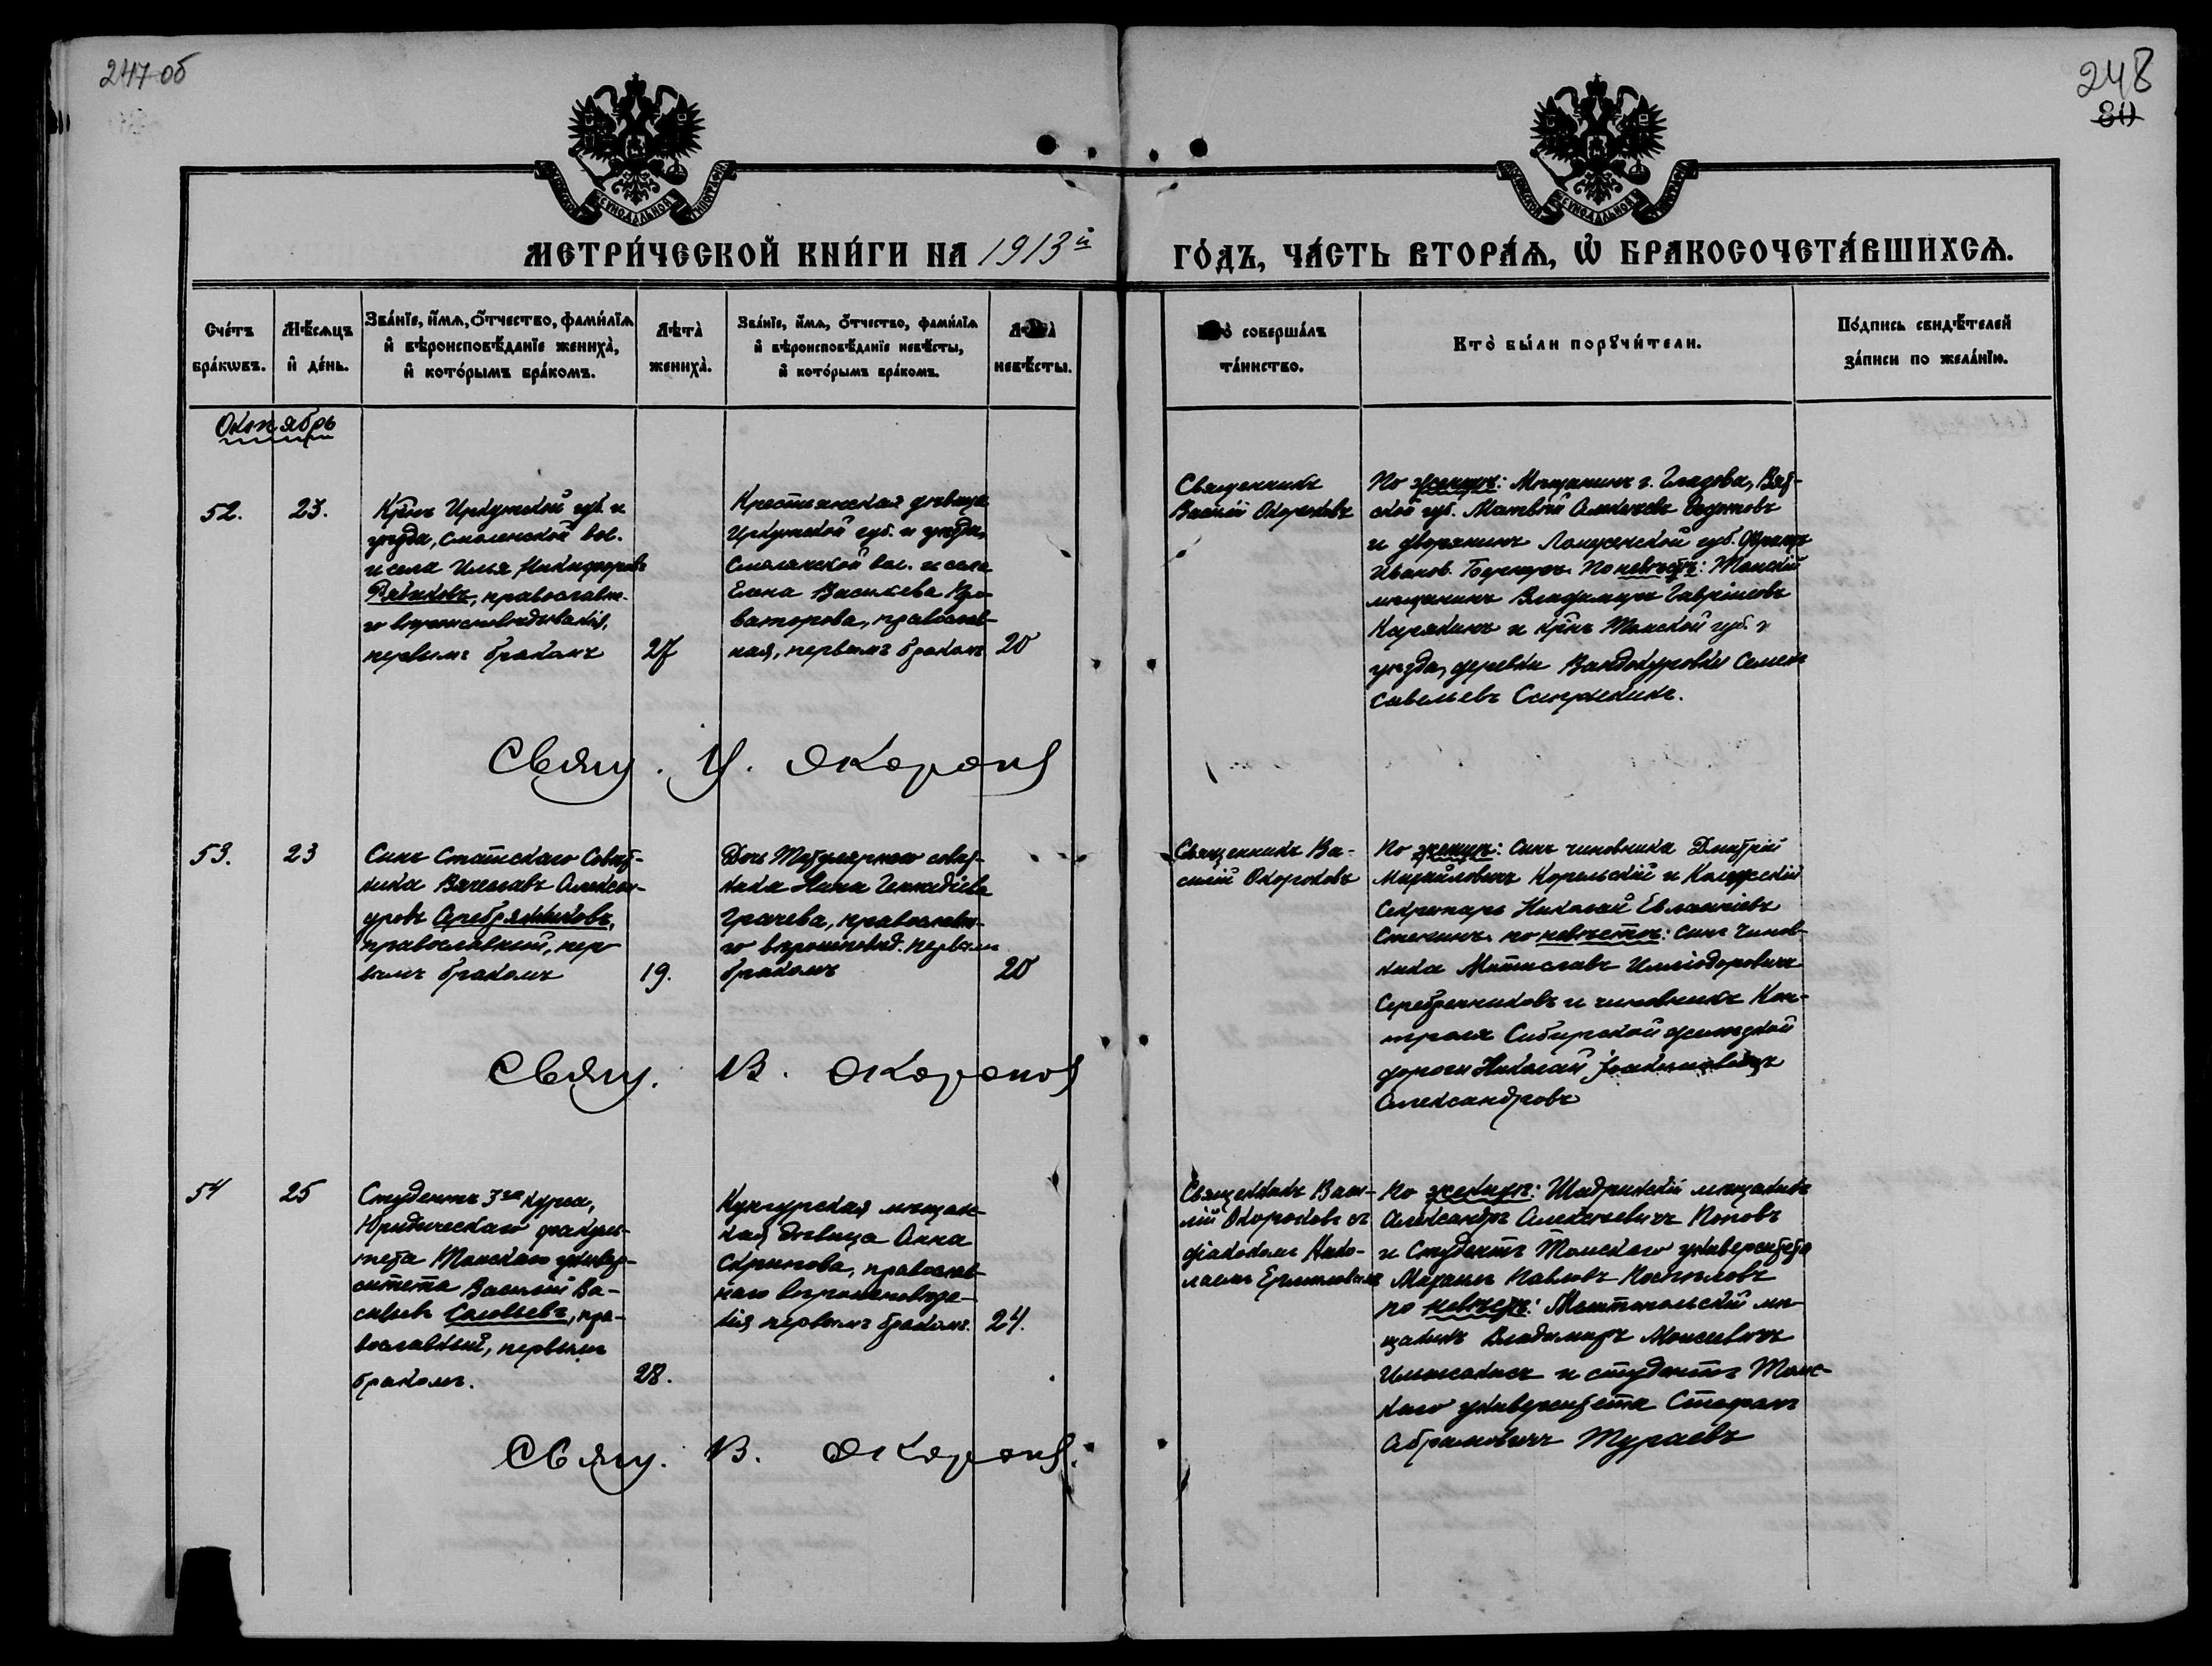 247 об
248
80
МЕТРИ́ЧЕСКОЙ КНИ́ГИ НА 1913й
ГО́ДЪ, ЧА́СТЬ ВТОРА́Я, Ѽ БРАКОСОЧЕТА́ВШИХСѦ.
Сче́тъ бра́кѡвъ.
Мѣ́сяцъ и҆ де́нь.
Зва́нїе, и҆́мѧ, ѻ҆́тчество, фами́лїѧ
и҆ вѣроисповѣ́данїе жениха̀,
и҆ кото́рымъ бра́комъ.
Лѣта̀ жениха̀.
Зва́нїе, и҆́мѧ, ѻ҆́тчество, фами́лїѧ
и҆ вѣроисповѣ́данїе невѣ́сты,
и҆ кото́рымъ бра́комъ.
невѣ́сты.
соверша́лъ
та́инство.
Кто̀ бы́ли порꙋчи́тели.
По́дпись свидѣ́телей
за́писи по жела́нїю.
Октябрь
52.
23.
Крнъ Иркутской губ. и
уѣзда, Смоленской вол.
и села Илья Никифоровъ
Рябиковъ, православна-
го вѣроисповѣданія,
первымъ бракомъ
27
Крестьянская дѣвица
Иркутской губ. и уѣзда,
Смоленской вол. и села
Елена Васильева
православ-
ная, первымъ бракомъ
20
Священникъ
Василій Окороковъ
По женихѣ: Мѣщанинъ г. Глазова, Вят-
ской губ. Матвѣй
и дворянинъ губ.
Иванов. По невѣстѣ: Томскій
мѣщанинъ Владимиръ Гавріиловъ
Карякинъ и крнъ Томской губ. и
уѣзда, деревни Вандокуровки Семенъ
Савельевъ
Свящ. В. Окороков
53.
23
Сынъ Статскаго Совѣт-
ника Вячеславъ Алексан-
дровъ Серебряниковъ,
православный, пер-
вымъ бракомъ
19.
Дочь Титулярнаго совѣт-
ника Нина Геннадіева
Грачева, православна-
го вѣроисповѣд. первымъ
бракомъ
20
Священникъ Ва-
силій Окороковъ
По женихѣ: Сынъ чиновника Дмитрій
Михайловичъ Корельскій и Коллежскій
Секретарь Николай Евлампіевъ
Степинъ. по невѣстѣ: сынъ Чинов-
ника Мстиславъ Иліодоровичъ
Серебренниковъ и чиновникъ Кон-
троля Сибирской желѣзной
дороги Николай Іоакимовичъ
Александровъ
Свящ. В. Окороков
54
25
Студентъ 3го курса,
Юридическаго факуль-
тета Томскаго универ-
ситета Василій Ва-
сильевъ Соловьевъ, пра-
вославный, первымъ
бракомъ.
28.
Кунгурская мѣщан-
ская дѣвица Анна
Скрипова, православ-
наго вѣроисповѣда-
нія первымъ бракомъ.
24.
Священникъ Васи-
лій Окороковъ съ
діакономъ Нико-
лаемъ
По женихѣ: Шадринскій мѣщанинъ
Александръ Алексѣевичъ Поповъ
и Студентъ Томскаго университета
Михаилъ Павловъ
по невѣстѣ: мѣ-
щанинъ Владимиръ Моисеевичъ
и студентъ Томс-
каго университета Стефанъ
Абрамовичъ Тураевъ
Свящ. В. Окороков.